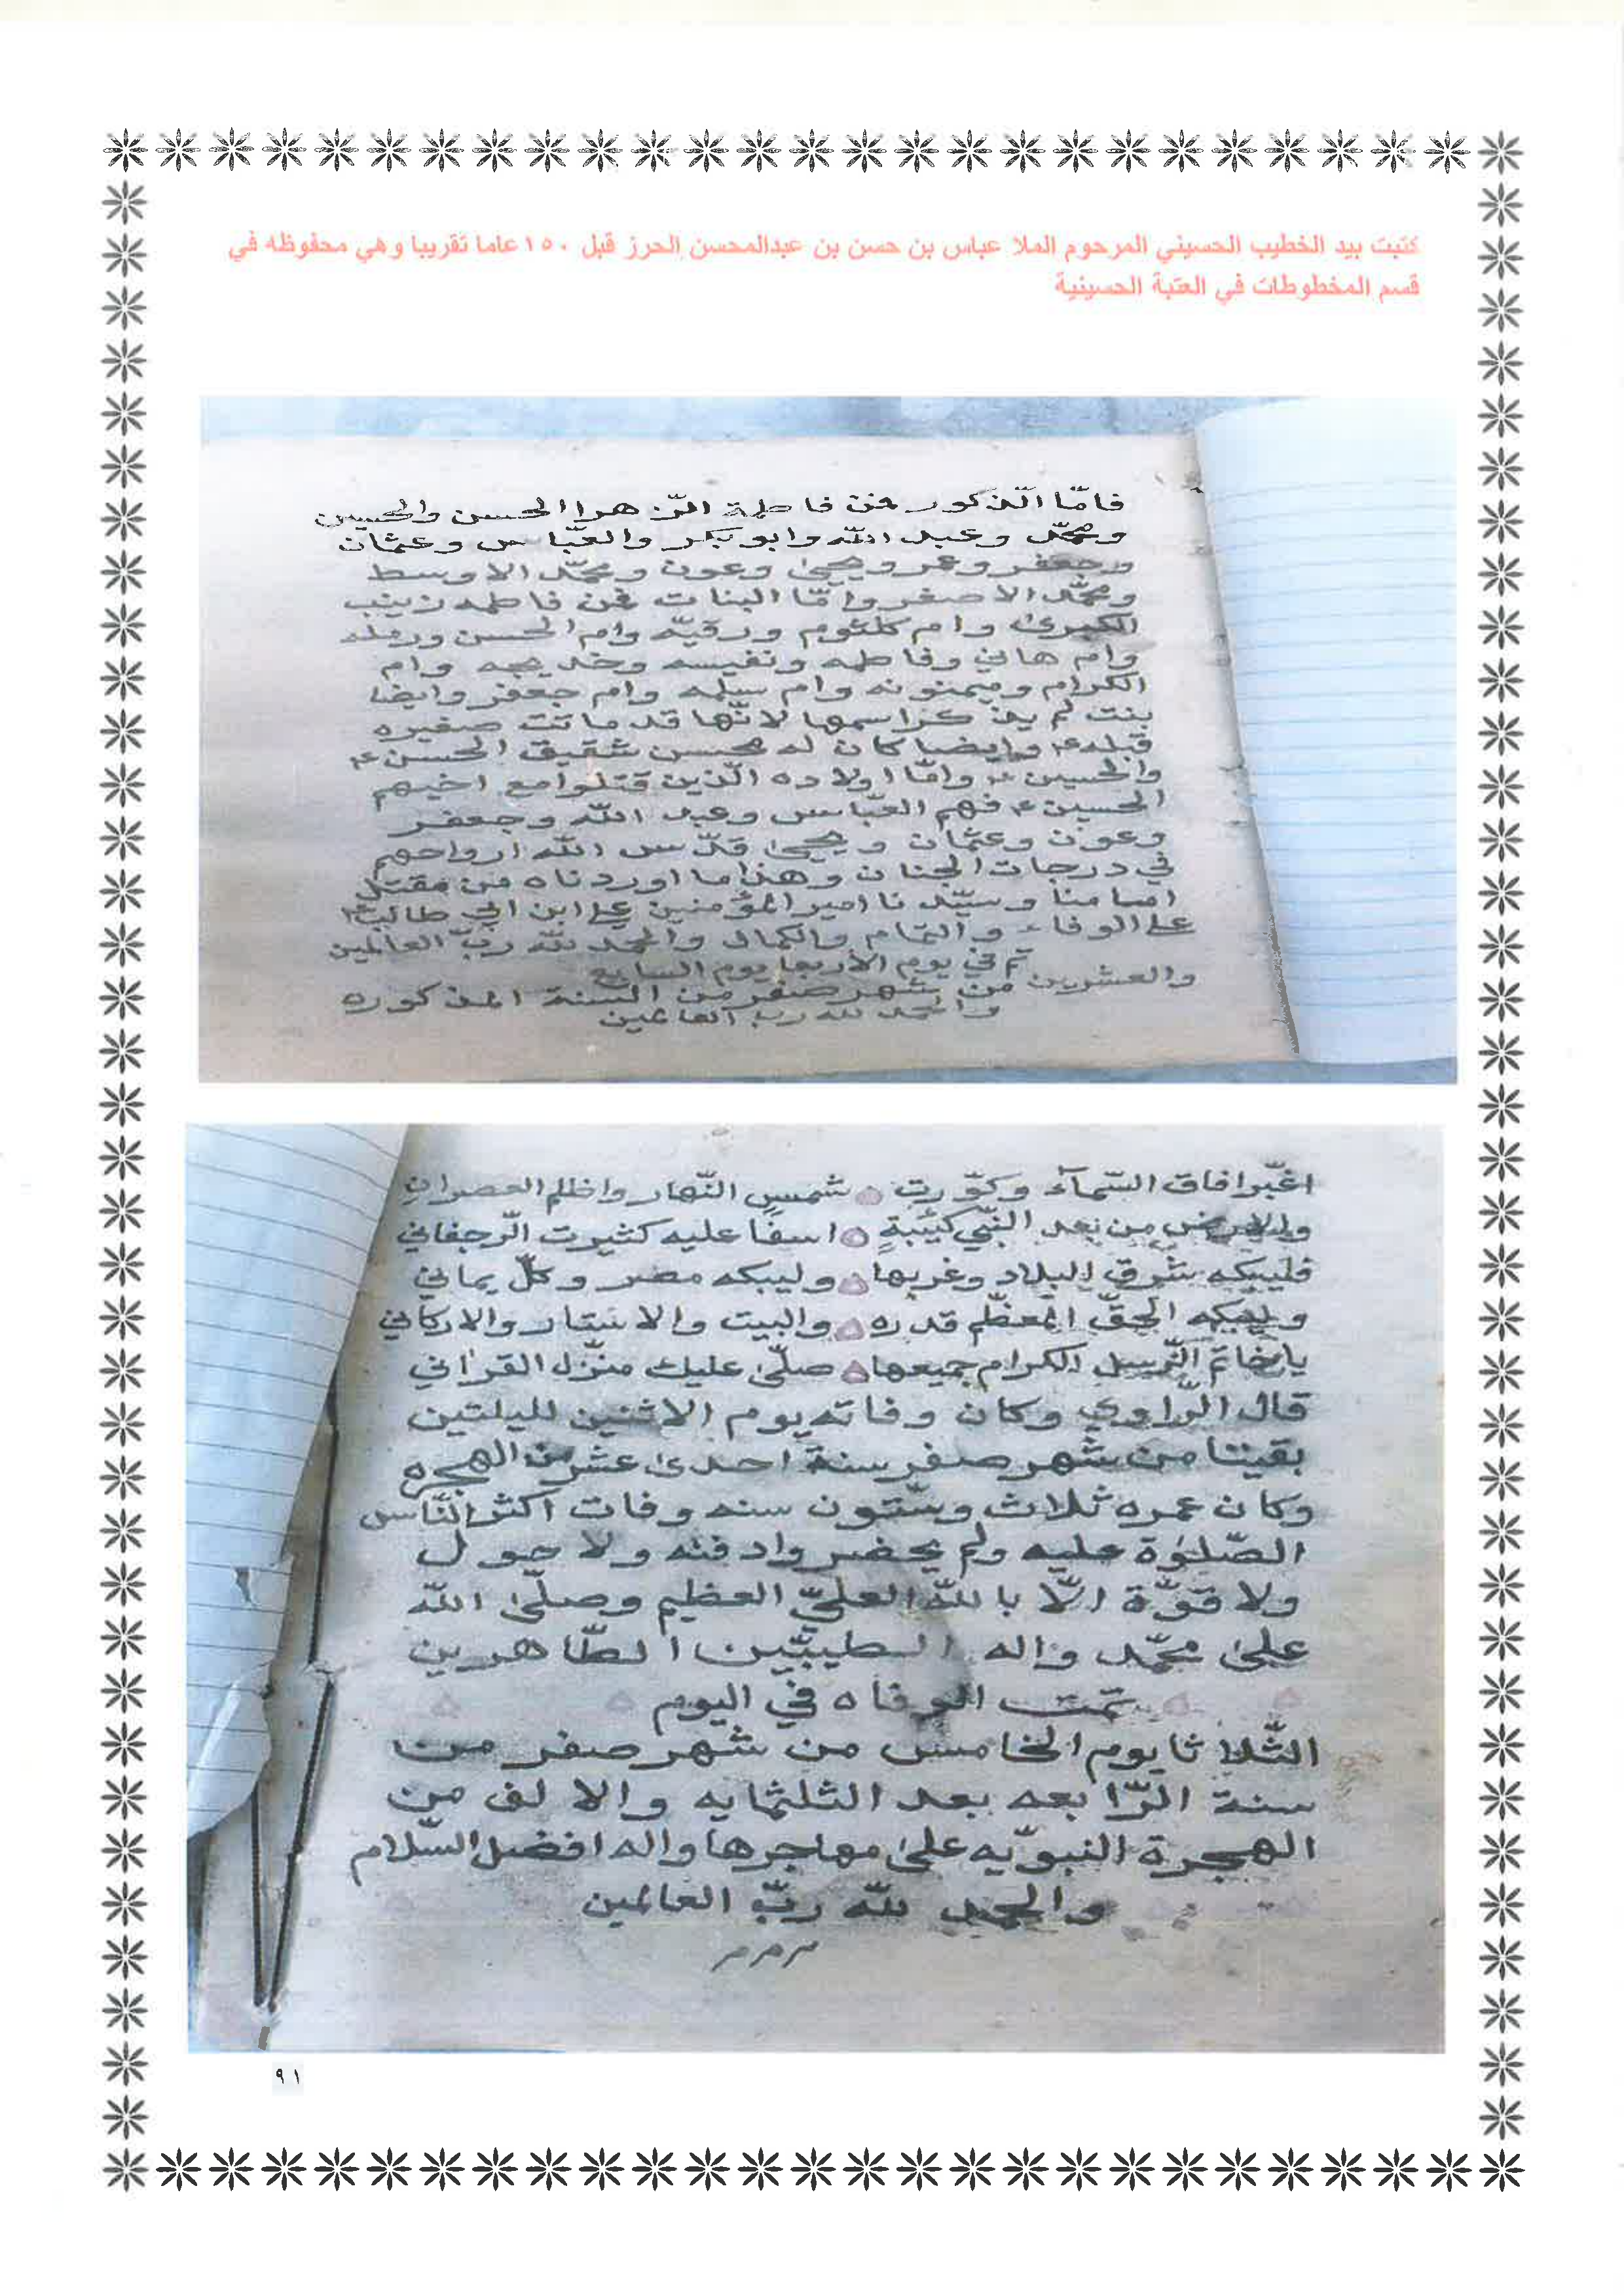 كتبت بيد الخطيب الحسيني المرحوم الملا عباس بن حسن بن عبدالمحسن الحرز قبل ١٥٠ عاما تقريبا وهي محفوظه في
قسم المخطوطات في العتبة الحسينية
فامّا الذكور فمن فاطمة الزّهرا الحسن والحسين
ومحمّد وعبد الله وابو بكر والعبّاس وعثمان
وجعفر وعمر ويحيىٰ وعون ومحمّد الاوسط
ومحمّد الاصغر وامّا البنات فمن فاطمه زينب
الكبرىٰ وام كلثوم ورقيّه وام الحسن ورمله
وام هاني وفاطمه ونفيسه وخديجه وام
الكرام وميمنونه وام سلمه وام جعفر وايضا
بنت لم يذكر اسمها لانّها قد ماتت صغيره
قبله ع وايضا كان له محسن شقيق الحسن ع
والحسين ع وامّا اولاده الّذين قتلوا مع اخيهم
الحسين ع فهم العبّاس وعبد الله وجعفر
وعون وعثمان ويحيىٰ قدّس الله ارواحهم
في درجات الجنان وهذا ما اوردناه من مقتل
امامنا وسيّدنا امير المؤمنين علي ابن ابي طالب ع
على الوفاء والتمام والكمال والحمد لله ربّ العالمين
تم في يوم الاربعا يوم السابع
والعشرين من شهر صفر من السنة المذكوره
والحمد لله ربّ العالمين
اغبّر افاق السّمآء وكوّرت شمس النّهار واظلم العصران
والارض من بعد النبّي كئيبةٍ اسفًا عليه كثيرت الرّجفاني
فليبكه شرق البلاد وغربها وليبكه مضر وكلّ يماني
وليبكه الجوّ المعظّم قدره والبيت والاستار والاركاني
يا خاتم الرّسل الكرام جميعها صلّىٰ عليك منزّل القراٰني
قال الرّاوي وكان وفاته يوم الاثنين لليلتين
بقيتا من شهر صفر سنة احدىٰ عشر من الهجره
وكان عمره ثلاث وستّون سنه وفات اكثر النّاس
الصّلوٰة عليه ولم يحضروا دفنه ولا حول
ولا قوّة الّا بالله العليّ العظيم وصلّىٰ الله
علىٰ محمّد واله الطيبّين الطّاهرين
تمّت الوفاه في اليوم
الثّلاثا يوم الخامس من شهر صفر من
سنة الرّابعه بعد الثلثمايه والالف من
الهجرة النبويّه علىٰ مهاجرها واله افضل السّلام
والحمد لله ربّ العالمين
٩١